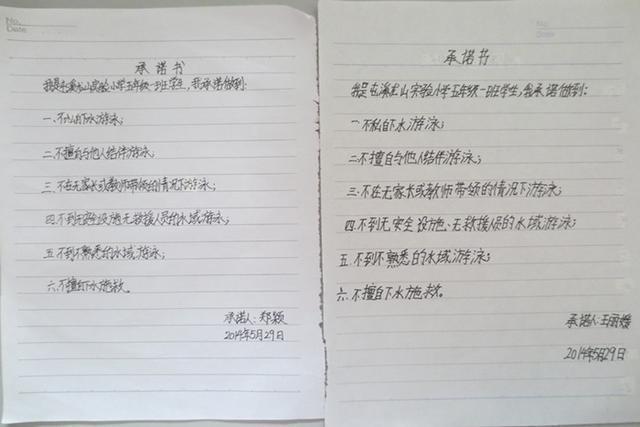 No.
Date
承诺书
我是屯溪龙山实验小学五年级一班学生，我承诺做到：
一.不私自下水游泳；
二.不擅自与他人结伴游泳；
三.不在无家长或教师带领的情况下游泳；
四.不到无安全设施、无救援人员的水域游泳；
五.不到不熟悉的水域游泳；
六.不擅自下水施救。
承诺人：郑颖
2014年5月29日
No.
Date
承诺书
我是屯溪龙山实验小学五年级一班学生，我承诺做到：
一.不私自下水游泳；
二.不擅自与他人结伴游泳；
三.不在无家长或教师带领的情况下游泳；
四.不到无安全设施、无救援人员的水域游泳；
五.不到不熟悉的水域游泳；
六.不擅自下水施救。
承诺人：王雨媛
2014年5月29日